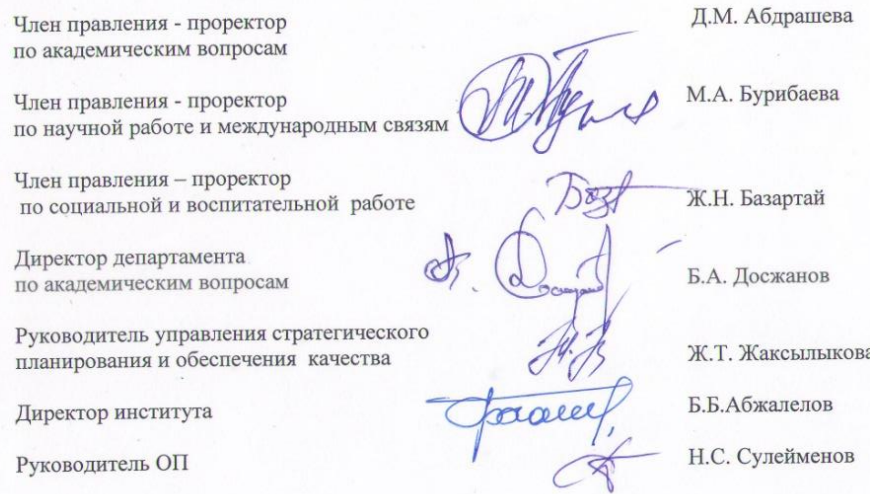 Член правления - проректор
по академическим вопросам
Д.М. Абдрашева
Член правления - проректор
по научной работе и международным связям
М.А. Бурибаева
Член правления – проректор
по социальной и воспитательной работе
Ж.Н. Базартай
Директор департамента
по академическим вопросам
Б.А. Досжанов
Руководитель управления стратегического
планирования и обеспечения качества
Ж.Т. Жаксылыкова
Директор института
Б.Б.Абжалелов
Руководитель ОП
Н.С. Сулейменов